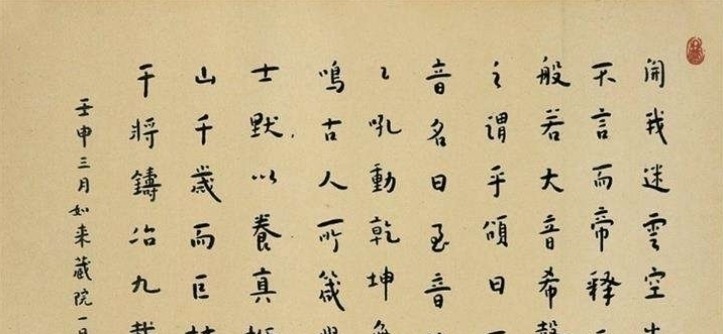 開我迷雲空
不言而帝釋
般若大音希聲
之謂乎頌曰
音名曰至音
之吼動乾坤
鳴古人所箴
士默以養真
山千歲而巨
干將鑄冶九載
壬申三月如来藏院一